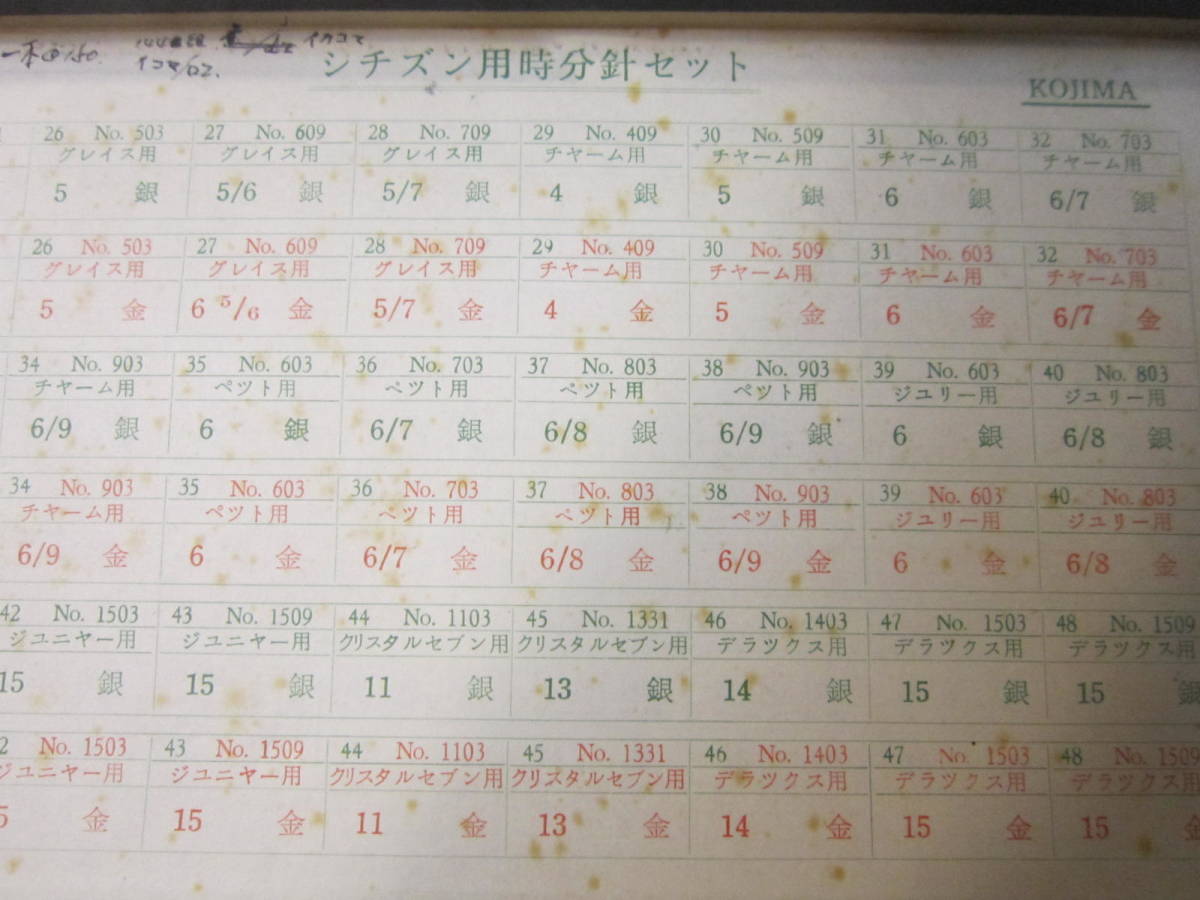 一本@150
シチズン用時分針セット
KOJIMA
26 No. 503 27 No. 609 28 No. 709 29 No. 409 30 No. 509 31 No. 603 32 No. 703
グレイス用 グレイス用 グレイス用 チヤーム用 チヤーム用 チヤーム用 チヤーム用
5 銀 5/6 銀 5/7 銀 4 銀 5 銀 6 銀 6/7 銀
26 No. 503 27 No. 609 28 No. 709 29 No. 409 30 No. 509 31 No. 603 32 No. 703
グレイス用 グレイス用 グレイス用 チヤーム用 チヤーム用 チヤーム用 チヤーム用
5 金 6 5/6 金 5/7 金 4 金 5 金 6 金 6/7 金
34 No. 903 35 No. 603 36 No. 703 37 No. 803 38 No. 903 39 No. 603 40 No. 803
チヤーム用 ペツト用 ペツト用 ペツト用 ペツト用 ジユリー用 ジユリー用
6/9 銀 6 銀 6/7 銀 6/8 銀 6/9 銀 6 銀 6/8 銀
34 No. 903 35 No. 603 36 No. 703 37 No. 803 38 No. 903 39 No. 603 40 No. 803
チヤーム用 ペツト用 ペツト用 ペツト用 ペツト用 ジユリー用 ジユリー用
6/9 金 6 金 6/7 金 6/8 金 6/9 金 6 金 6/8 金
42 No. 1503 43 No. 1509 44 No. 1103 45 No. 1331 46 No. 1403 47 No. 1503 48 No. 1509
ジユニヤー用 ジユニヤー用 クリスタルセブン用 クリスタルセブン用 デラツクス用 デラツクス用 デラツクス用
15 銀 15 銀 11 銀 13 銀 14 銀 15 銀 15 銀
2 No. 1503 43 No. 1509 44 No. 1103 45 No. 1331 46 No. 1403 47 No. 1503 48 No. 1509
ジユニヤー用 ジユニヤー用 クリスタルセブン用 クリスタルセブン用 デラツクス用 デラツクス用 デラツクス用
5 金 15 金 11 金 13 金 14 金 15 金 15 金